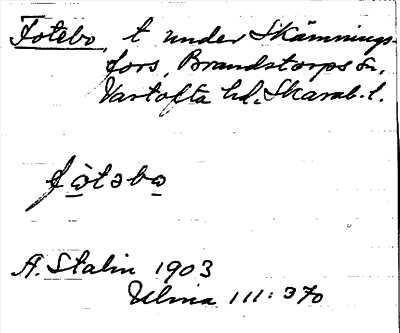 Fotebo, t under Skämnings-
fors, Brandstorps sn,
Vartofta hd. Skarab. l.
fòtəbo
A. Stalin 1903
Ulma 111:370